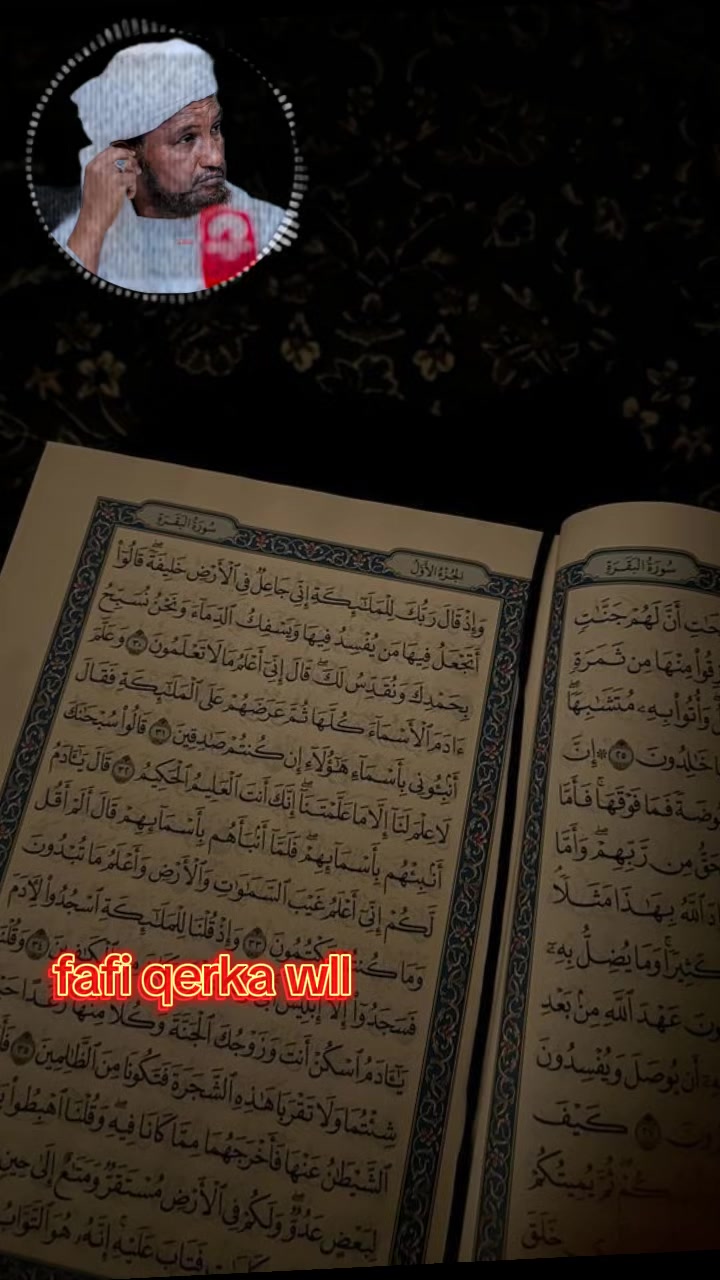 سُورَةُ البَقَرَةِ
الجُزْءُ الأَوَّلُ
وَإِذْ قَالَ رَبُّكَ لِلْمَلَٰٓئِكَةِ إِنِّى جَاعِلٌ فِى ٱلْأَرْضِ خَلِيفَةً ۖ قَالُوٓا۟
أَتَجْعَلُ فِيهَا مَن يُفْسِدُ فِيهَا وَيَسْفِكُ ٱلدِّمَآءَ وَنَحْنُ نُسَبِّحُ
بِحَمْدِكَ وَنُقَدِّسُ لَكَ ۖ قَالَ إِنِّىٓ أَعْلَمُ مَا لَا تَعْلَمُونَ ٣٠ وَعَلَّمَ
ءَادَمَ ٱلْأَسْمَآءَ كُلَّهَا ثُمَّ عَرَضَهُمْ عَلَى ٱلْمَلَٰٓئِكَةِ فَقَالَ
أَنۢبِـُٔونِى بِأَسْمَآءِ هَٰٓؤُلَآءِ إِن كُنتُمْ صَٰدِقِينَ ٣١ قَالُوا۟ سُبْحَٰنَكَ
لَا عِلْمَ لَنَآ إِلَّا مَا عَلَّمْتَنَآ ۖ إِنَّكَ أَنتَ ٱلْعَلِيمُ ٱلْحَكِيمُ ٣٢ قَالَ يَٰٓـَٔادَمُ
أَنۢبِئْهُم بِأَسْمَآئِهِمْ ۖ فَلَمَّآ أَنۢبَأَهُم بِأَسْمَآئِهِمْ قَالَ أَلَمْ أَقُل
لَّكُمْ إِنِّىٓ أَعْلَمُ غَيْبَ ٱلسَّمَٰوَٰتِ وَٱلْأَرْضِ وَأَعْلَمُ مَا تُبْدُونَ
وَمَا كُنتُمْ تَكْتُمُونَ ٣٣ وَإِذْ قُلْنَا لِلْمَلَٰٓئِكَةِ ٱسْجُدُوا۟ لِـَٔادَمَ
فَسَجَدُوٓا۟ إِلَّآ إِبْلِيسَ ٣٤ وَقُلْنَا
fafi qerka wll
يَٰٓـَٔادَمُ ٱسْكُنْ أَنتَ وَزَوْجُكَ ٱلْجَنَّةَ وَكُلَا مِنْهَا رَغَدًا
شِئْتُمَا وَلَا تَقْرَبَا هَٰذِهِ ٱلشَّجَرَةَ فَتَكُونَا مِنَ ٱلظَّٰلِمِينَ ٣٥
ٱلشَّيْطَٰنُ عَنْهَا فَأَخْرَجَهُمَا مِمَّا كَانَا فِيهِ ۖ وَقُلْنَا ٱهْبِطُوا۟
لِبَعْضٍ عَدُوٌّ ۖ وَلَكُمْ فِى ٱلْأَرْضِ مُسْتَقَرٌّ وَمَتَٰعٌ إِلَىٰ حِينٍ
فَتَابَ عَلَيْهِ ۚ إِنَّهُۥ هُوَ ٱلتَّوَّابُ
سُورَةُ البَقَرَةِ
أَنَّ لَهُمْ جَنَّٰتٍ
مِنْهَا مِن ثَمَرَةٍ
وَأُتُوا۟ بِهِۦ مُتَشَٰبِهًا
خَٰلِدُونَ ٢٥ إِنَّ
فَمَا فَوْقَهَا ۚ فَأَمَّا
مِن رَّبِّهِمْ ۖ وَأَمَّا
ٱللَّهُ بِهَٰذَا مَثَلًا
كَثِيرًا ۚ وَمَا يُضِلُّ بِهِۦٓ
عَهْدَ ٱللَّهِ مِنۢ بَعْدِ
أَن يُوصَلَ وَيُفْسِدُونَ
كَيْفَ
ثُمَّ يُمِيتُكُمْ
خَلَقَ